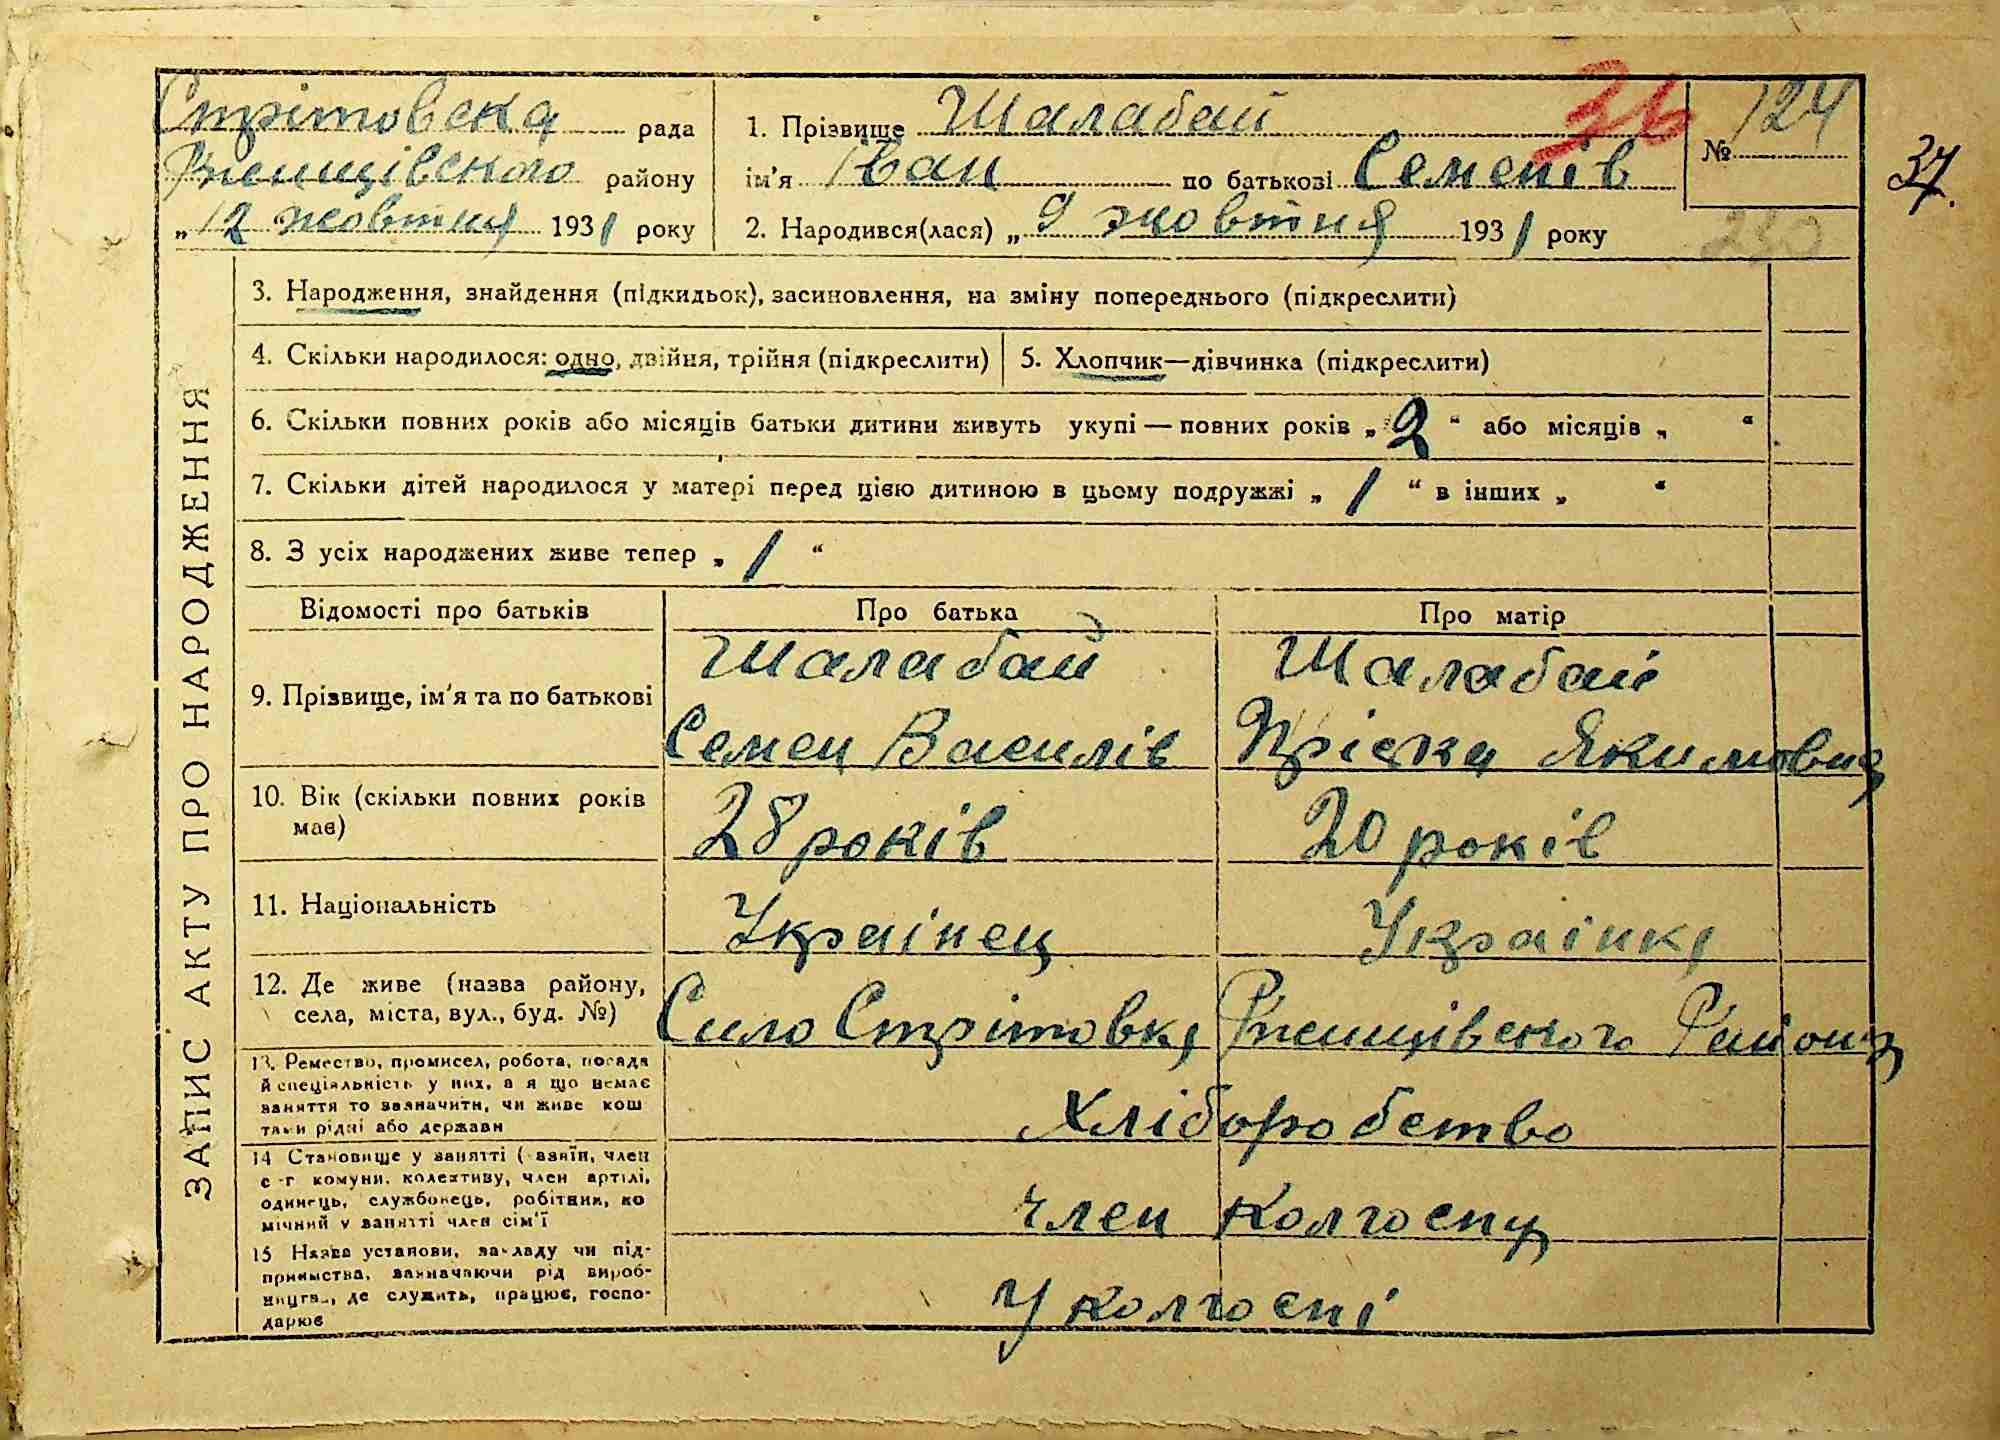 Стрітовска рада
Ржищівського району
„12 жовтня 1931 року
1. Прізвище Шалабай
ім'я Іван по батькові Семенів
2. Народився(лася) „9 жовтня 1931 року
36
№ 124
37.
230
ЗАПИС АКТУ ПРО НАРОДЖЕННЯ
3. Народження, знайдення (підкидьок), засиновлення, на зміну попереднього (підкреслити)
4. Скільки народилося: одно, двійня, трійня (підкреслити)
5. Хлопчик—дівчинка (підкреслити)
6. Скільки повних років або місяців батьки дитини живуть укупі — повних років „2“ або місяців „ “
7. Скільки дітей народилося у матері перед цією дитиною в цьому подружжі „1“ в інших „ “
8. З усіх народжених живе тепер „1“
Відомості про батьків
Про батька
Про матір
9. Прізвище, ім'я та по батькові
Шалабай
Семен Василів
Шалабай
Пріська Якимовна
10. Вік (скільки повних років
має)
28 років
20 років
11. Національність
Українец
Українка
12. Де живе (назва району,
села, міста, вул., буд. №)
Сило Стрітовка Ржищівського Району
13. Ремество, промисел, робота, посада
й спеціяльність у них, а я що немає
заняття то зазначити, чи живе кош
тами рідні або держави
Хліборобство
14 Становище у занятті ( азяїн, член
с-г комуни, колективу, член артілі,
одинець, службовець, робітник, по
мічний у занятті член сім'ї
член колгоспу
15 Назва установи, закладу чи під-
приємства, зазначаючи рід вироб-
ництва, де служить, працює, госпо-
дарює
У колгоспі